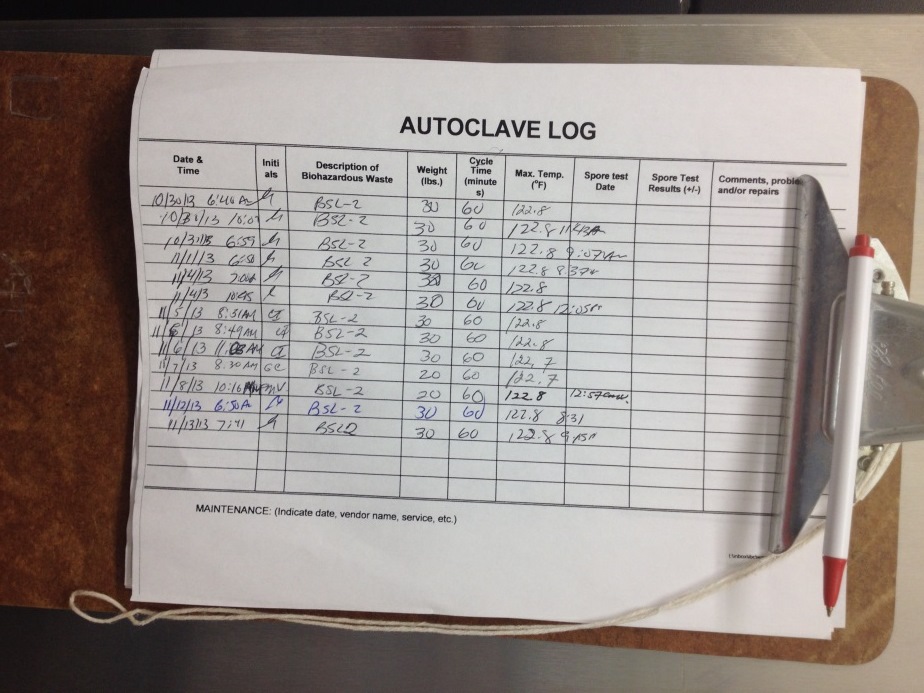 AUTOCLAVE LOG
Date & Time Initi als Description of Biohazardous Waste Weight (lbs.) Cycle Time (minute s) Max. Temp. (°F) Spore test Date Spore Test Results (+/-) Comments, proble and/or repairs
10/30/13 6:40 BSL-2 30 60 122.8
BSL-2 30 60 122.8
10/31/13 6:59 BSL-2 30 60 122.8 9:07
11/1/13 BSL 2 30 60 122.8
11/4/13 BSL-2 60 122.8
11/4/13 10:45 BSL-2 30 60 122.8
11/5/13 8:31AM CI BSL-2 30 60 122.8
/13 8:49AM CI BSL-2 30 60 122.8
11/6/13 CI BSL-2 30 60 122.7
11/7/13 8:30AM BSL-2 20 60 122.7
11/8/13 BSL-2 20 60 122.8 12:57
11/12/13 BSL-2 30 60 122.8 8:31
11/13/13 7:41 BSL2 30 60 122.8
MAINTENANCE: (Indicate date, vendor name, service, etc.)